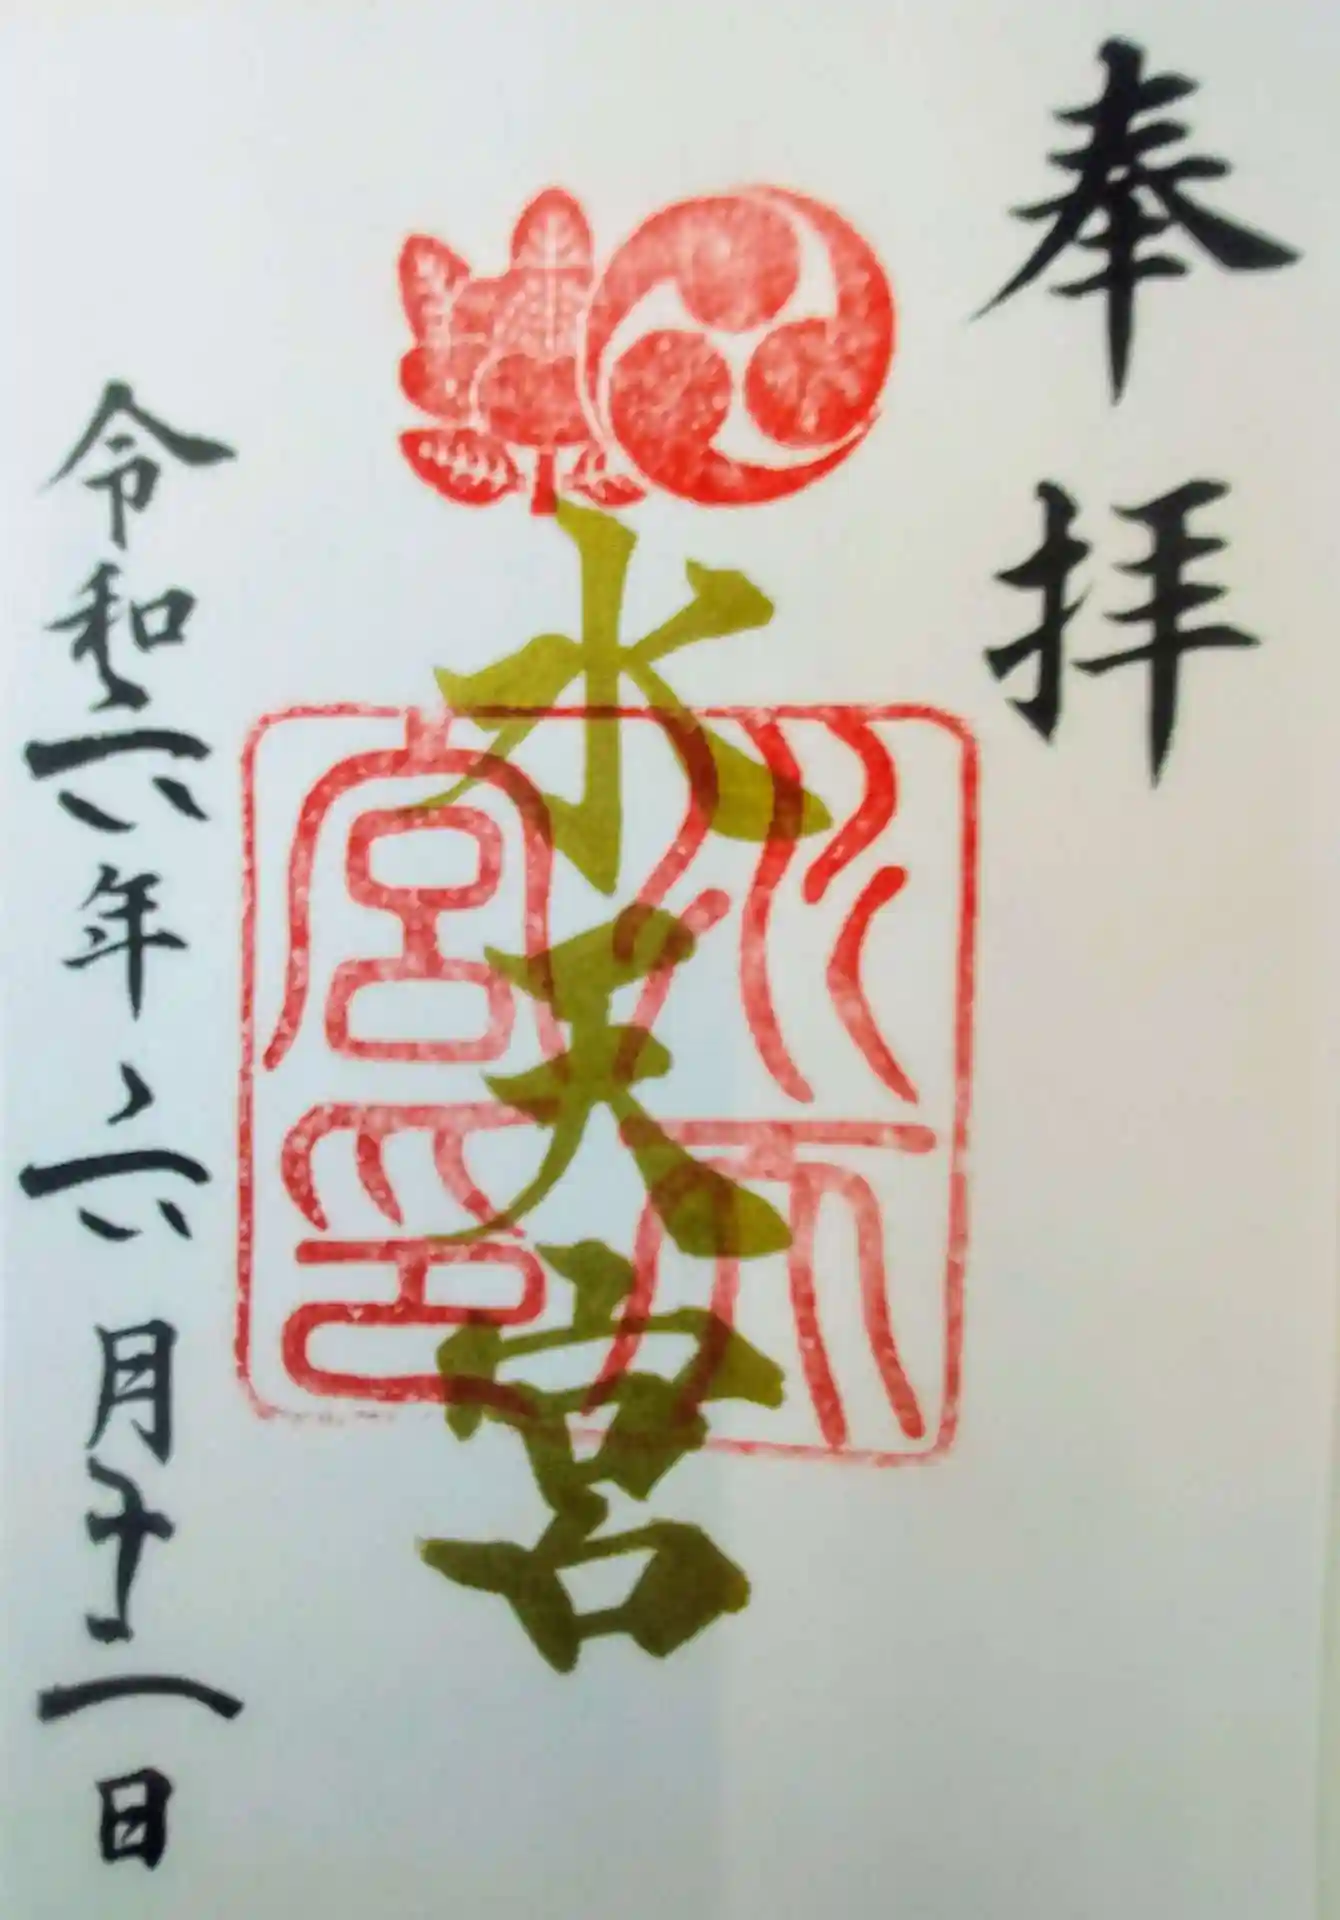 奉拝
水天宮
水天
宮印
令和六年六月十二日